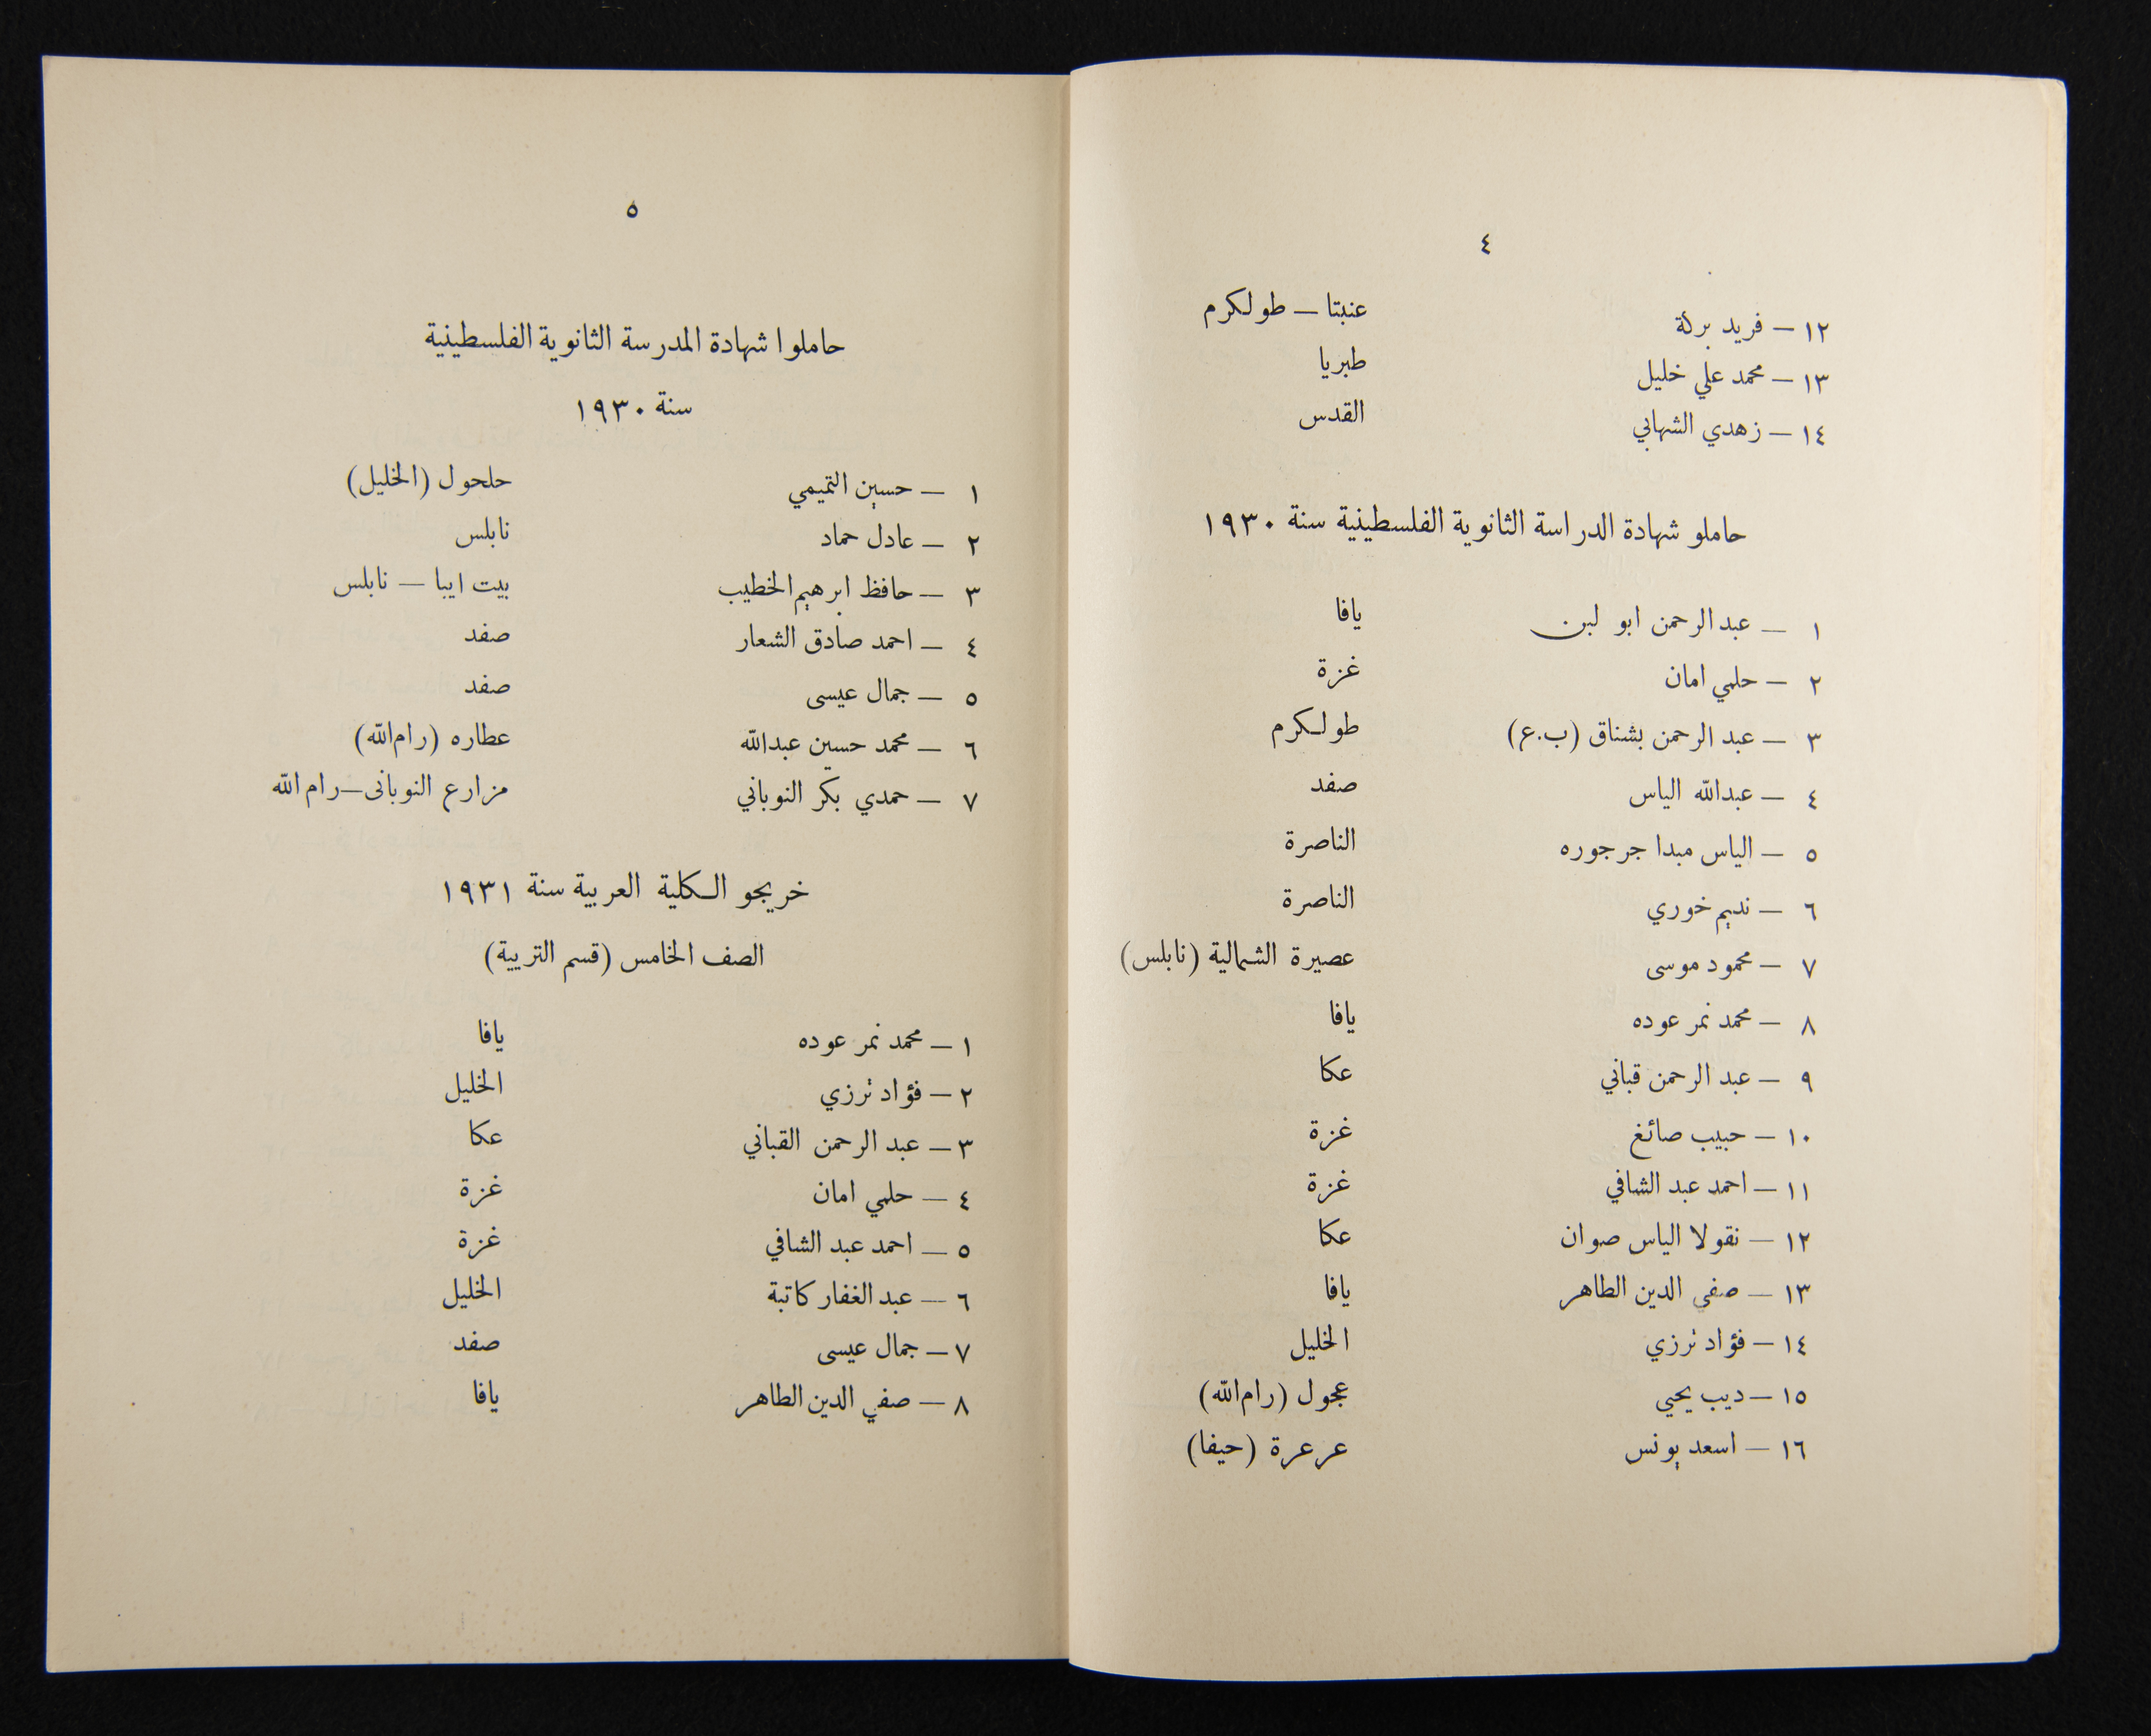 ٤
١٢ — فريد بركة عنبتا — طولكرم
١٣ — محمد علي خليل طبريا
١٤ — زهدي الشهابي القدس
حاملو شهادة الدراسة الثانوية الفلسطينية سنة ١٩٣٠
١ — عبد الرحمن ابو لبن يافا
٢ — حلمي امان غزة
٣ — عبد الرحمن بشناق (ب.ع) طولكرم
٤ — عبدالله الياس صفد
٥ — الياس مبدا جرجوره الناصرة
٦ — نديم خوري الناصرة
٧ — محمود موسى عصيرة الشمالية (نابلس)
٨ — محمد نمر عوده يافا
٩ — عبد الرحمن قباني عكا
١٠ — حبيب صائغ غزة
١١ — احمد عبد الشافي غزة
١٢ — نقولا الياس صوان عكا
١٣ — صفي الدين الطاهر يافا
١٤ — فؤاد ترزي الخليل
١٥ — ديب يحيي عجول (رام الله)
١٦ — اسعد يونس عرعرة (حيفا)
٥
حاملوا شهادة المدرسة الثانوية الفلسطينية
سنة ١٩٣٠
١ — حسين التميمي حلحول (الخليل)
٢ — عادل حماد نابلس
٣ — حافظ ابرهيم الخطيب بيت ايبا — نابلس
٤ — احمد صادق الشعار صفد
٥ — جمال عيسى صفد
٦ — محمد حسين عبدالله عطاره (رام الله)
٧ — حمدي بكر النوباني مزارع النوبانى — رام الله
خريجو الكلية العربية سنة ١٩٣١
الصف الخامس (قسم التربية)
١ — محمد نمر عوده يافا
٢ — فؤاد ترزي الخليل
٣ — عبد الرحمن القباني عكا
٤ — حلمي امان غزة
٥ — احمد عبد الشافي غزة
٦ — عبد الغفار كاتبة الخليل
٧ — جمال عيسى صفد
٨ — صفي الدين الطاهر يافا